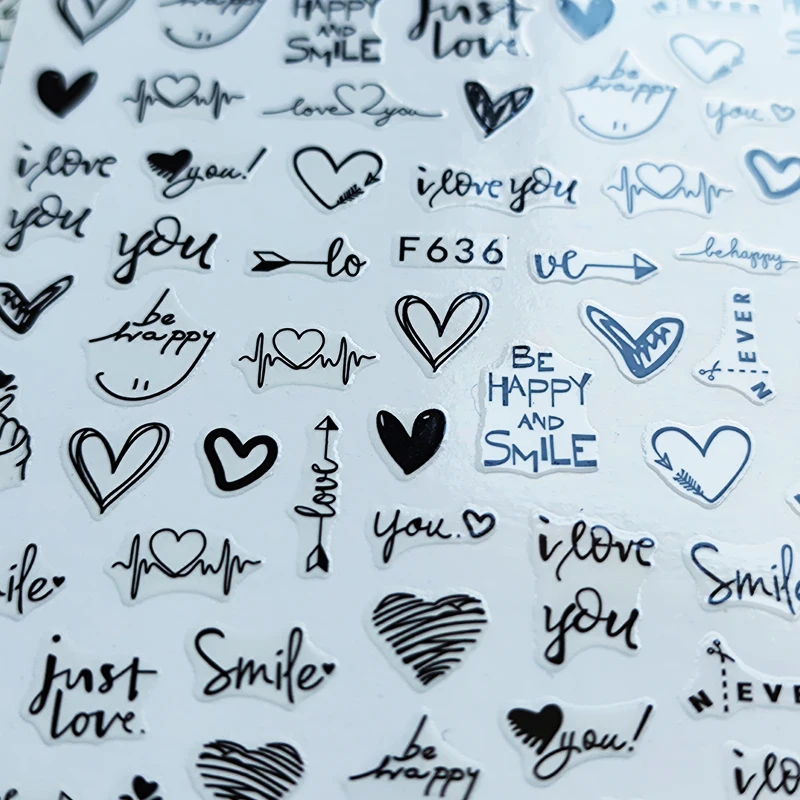 be
happy
HAPPY
AND
SMILE
Just
love.
love you
be
happy
you
i love
you
you!
i love you
you
lo
F636
ve
be happy
be
happy
BE
HAPPY
AND
SMILE
NEVER
love
you.
i love
you
Smile
Smile
just
love.
Smile
NEVE
you!
be
happy
i lo